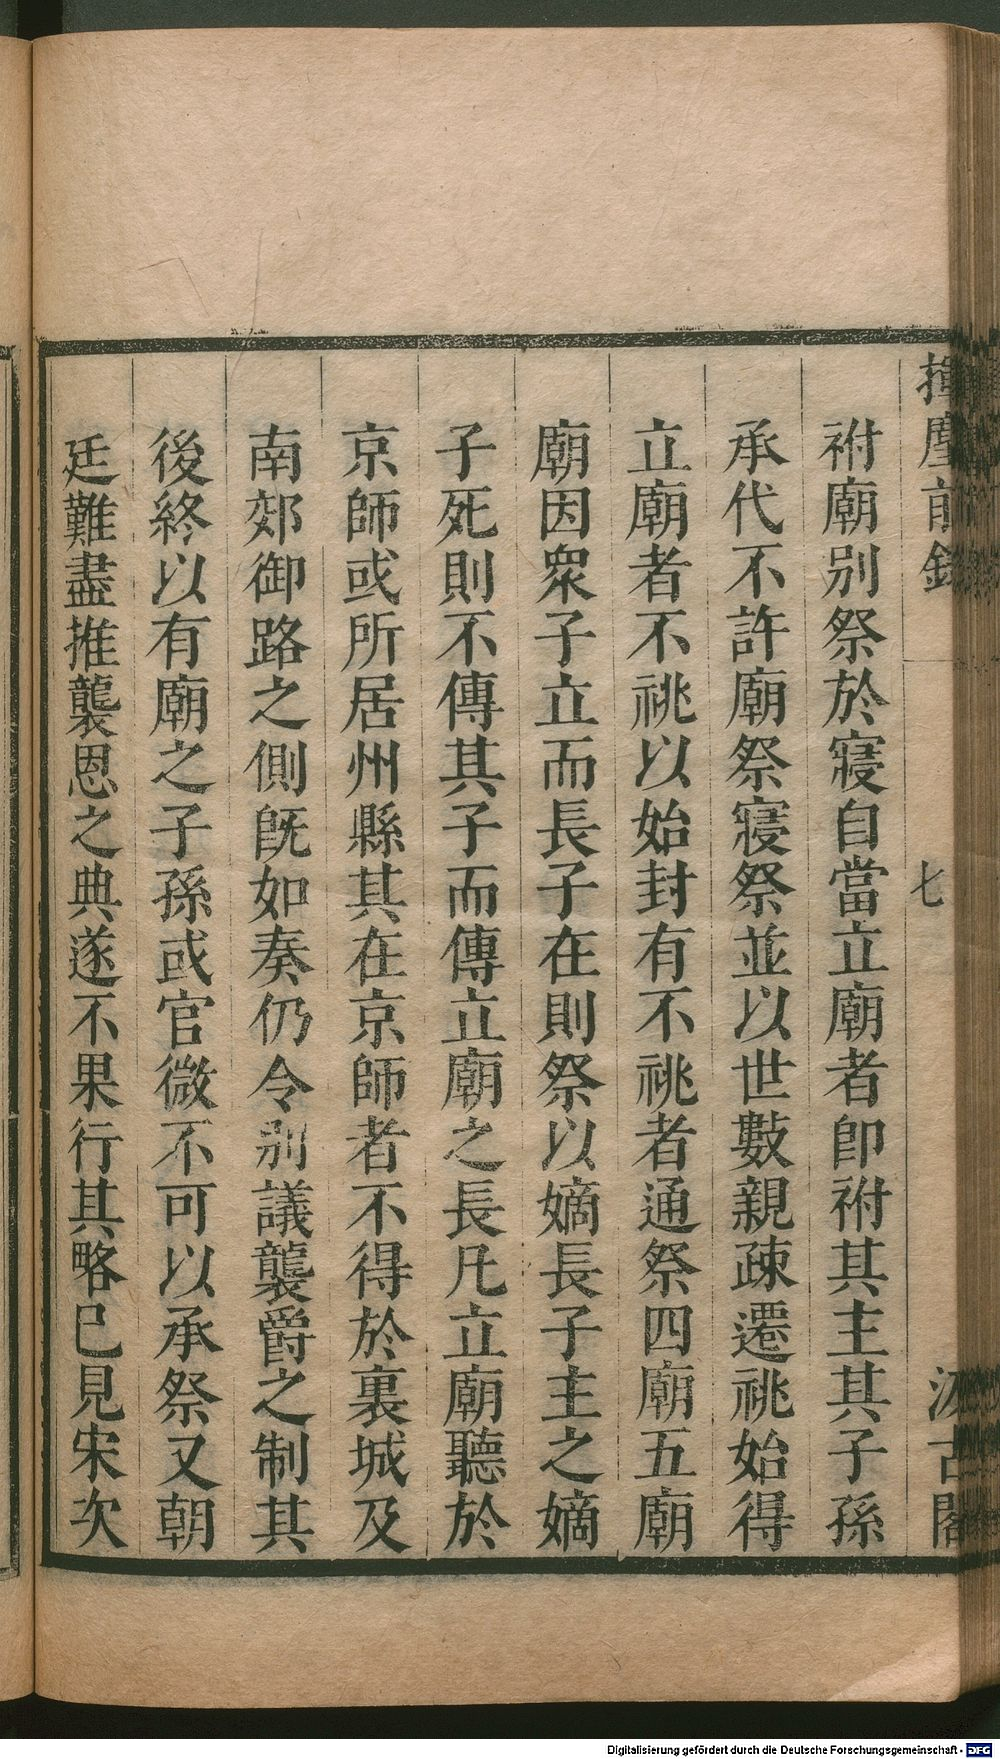 揮麈前錄 七 汲古閣
祔廟別祭於寢自當立廟者卽祔其主其子孫
承代不許廟祭寢祭並以世數親疎遷祧始得
立廟者不祧以始封有不祧者通祭四廟五廟
廟因衆子立而長子在則祭以嫡長子主之嫡
子死則不傳其子而傳立廟之長凡立廟聽於
京師或所居州縣其在京師者不得於裏城及
南郊御路之側旣如奏仍令別議襲爵之制其
後終以有廟之子孫或官微不可以承祭又朝
廷難盡推襲恩之典遂不果行其略已見宋次
Digitalisierung gefördert durch die Deutsche Forschungsgemeinschaft - DFG